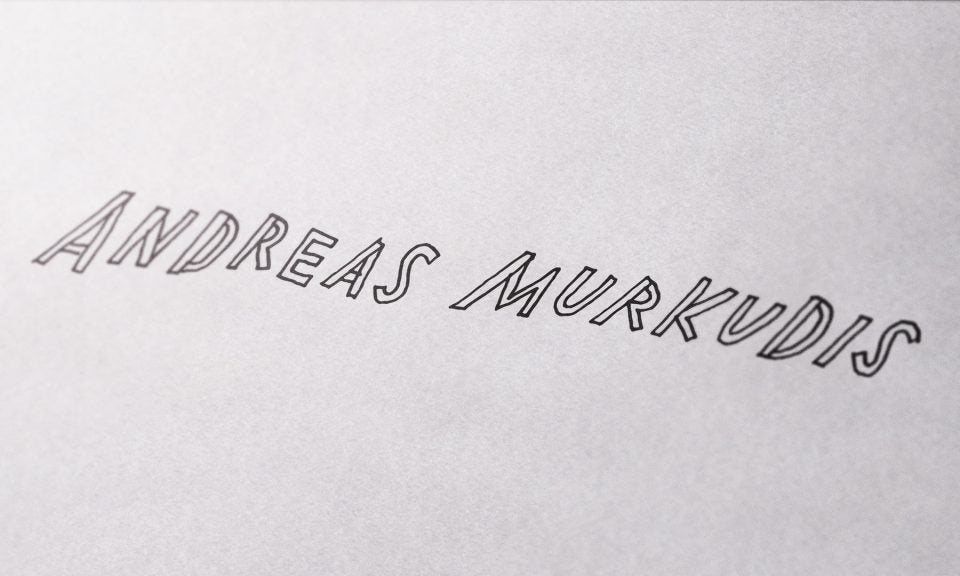 ANDREAS MURKUDIS